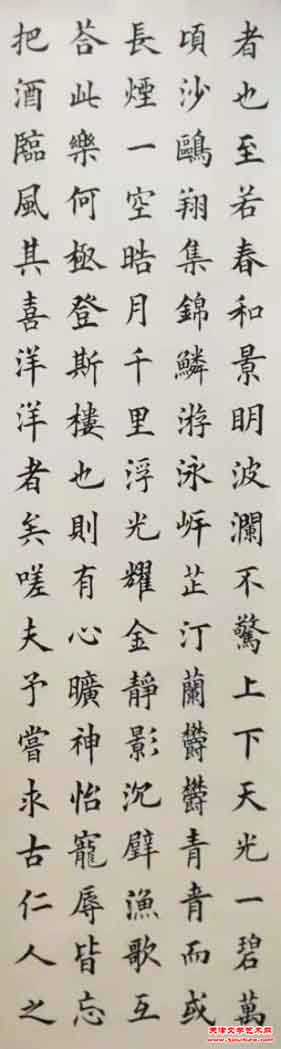 者也至若春和景明波瀾不驚上下天光一碧萬
頃沙鷗翔集錦鱗游泳岸芷汀蘭欎欎青青而或
長煙一空晧月千里浮光耀金靜影沉璧漁歌互
荅此樂何極登斯樓也則有心曠神怡寵辱皆忘
把酒臨風其喜洋洋者矣嗟夫予嘗求古仁人之
天津文学艺术网